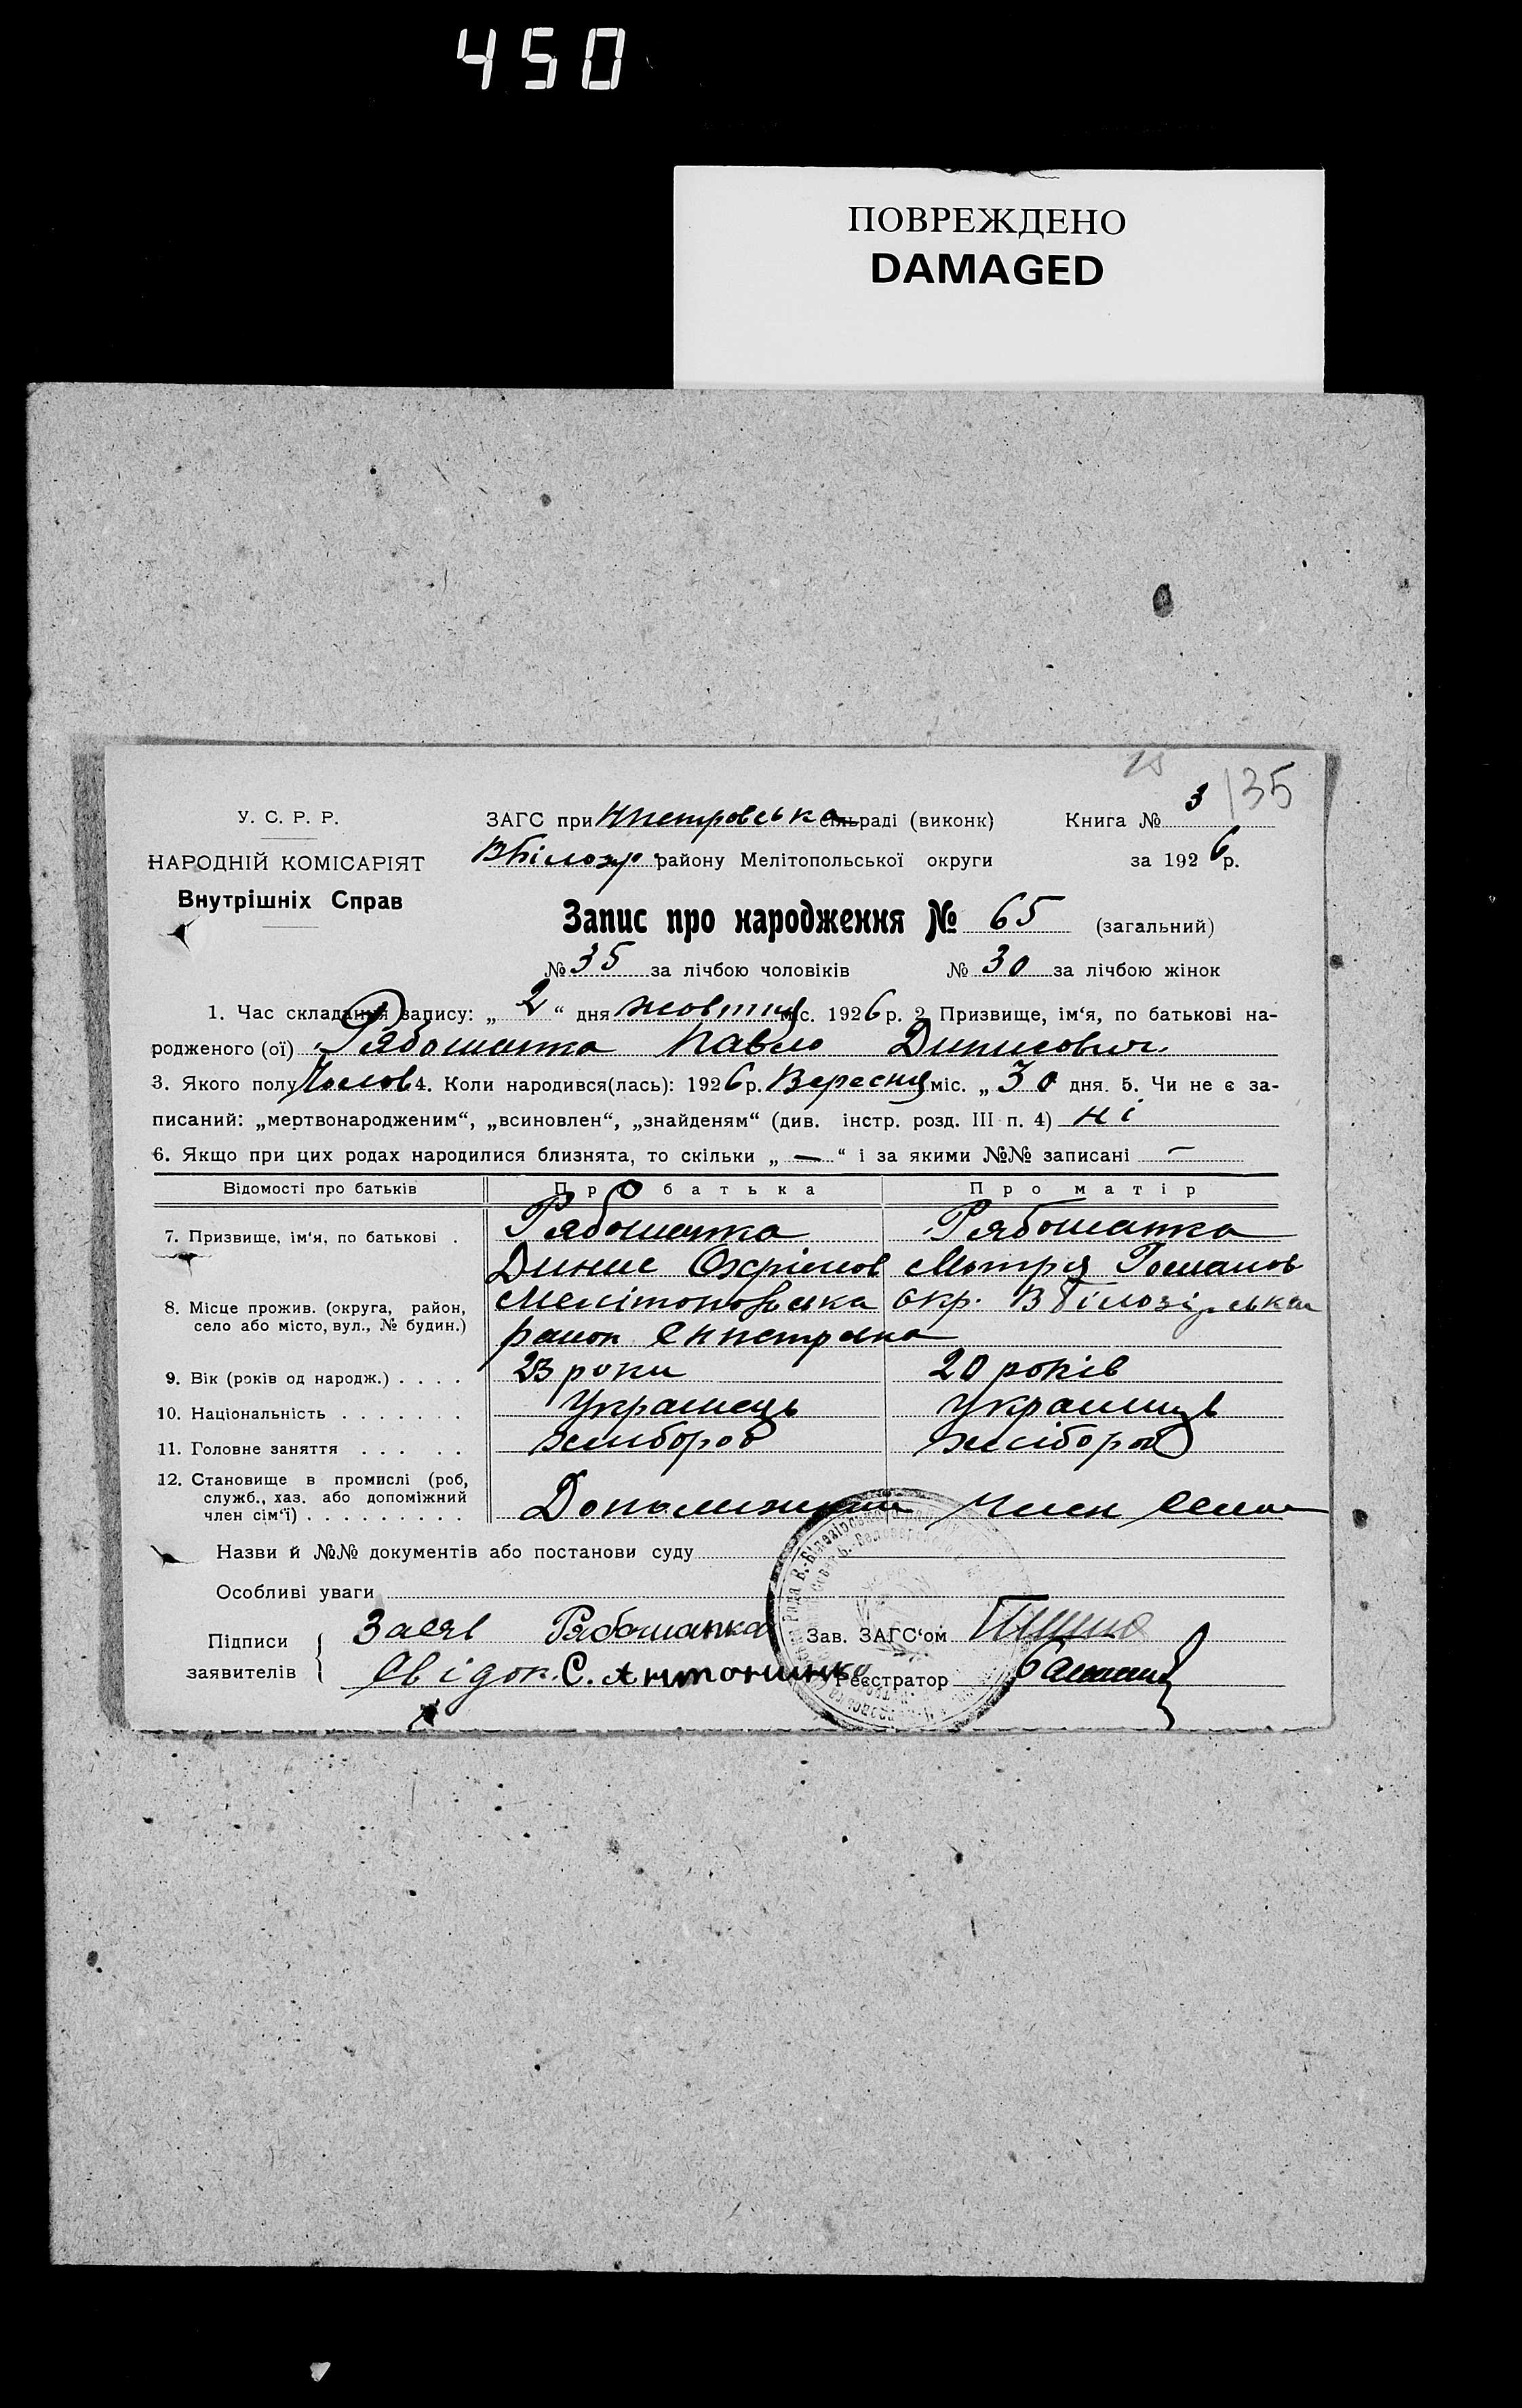 450
ПОВРЕЖДЕНО
DAMAGED
135
У. С. Р. Р.
ЗАГС при Кнетровська сільраді (виконк) Книга № 3
НАРОДНІЙ КОМІСАРІЯТ
Вбілозір району Мелітопольської округи за 1926 р.
Внутрішніх Справ
Запис про народження № 65 (загальний)
№ 35 за лічбою чоловіків № 30 за лічбою жінок
1. Час складання запису: „ 2 “ дня жовтня міс. 1926 р. 2 Призвище, ім‘я, по батькові на-
родженого (ої) Рябошапка Павло Динисович
3. Якого полу Чолов 4. Коли народився(лась): 1926 р. Вересня міс. „ 30 дня. 5. Чи не є за-
писаний: „мертвонародженим“, „всиновлен“, „знайденям“ (див. інстр. розд. III п. 4) ні
6. Якщо при цих родах народилися близнята, то скільки „ — “ і за якими №№ записані —
Відомості про батьків Про батька Про матір
7. Призвище, ім‘я, по батькові . Рябошапка Рябошапка
Динис Охрімов Мотря Романов
8. Місце прожив. (округа, район, Мелітопольська окр. Вбілозірськи
село або місто, вул., № будин.)
район
9. Вік (років од народж.) . . . . 23 роки 20 років
10. Національність . . . . . . . Украінець Украінців
11. Головне заняття . . . . . хлібороб хлібороб
12. Становище в промислі (роб,
служб., хаз. або допоміжний
член сім‘ї) . . . . . . . . . Допоміжний Член семьи
Назви й №№ документів або постанови суду
Особливі уваги
Підписи Заявт Рябошапка Зав. ЗАГС‘ом
заявителів Свідок. С. Антониннко Реєстратор